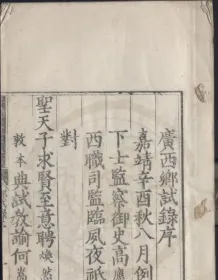 廣西鄉試錄序
嘉靖辛酉秋八月例
下士監察御史高應
西職司監臨夙夜祇
對
聖天子求賢至意聘煥然
敦本典試教諭何